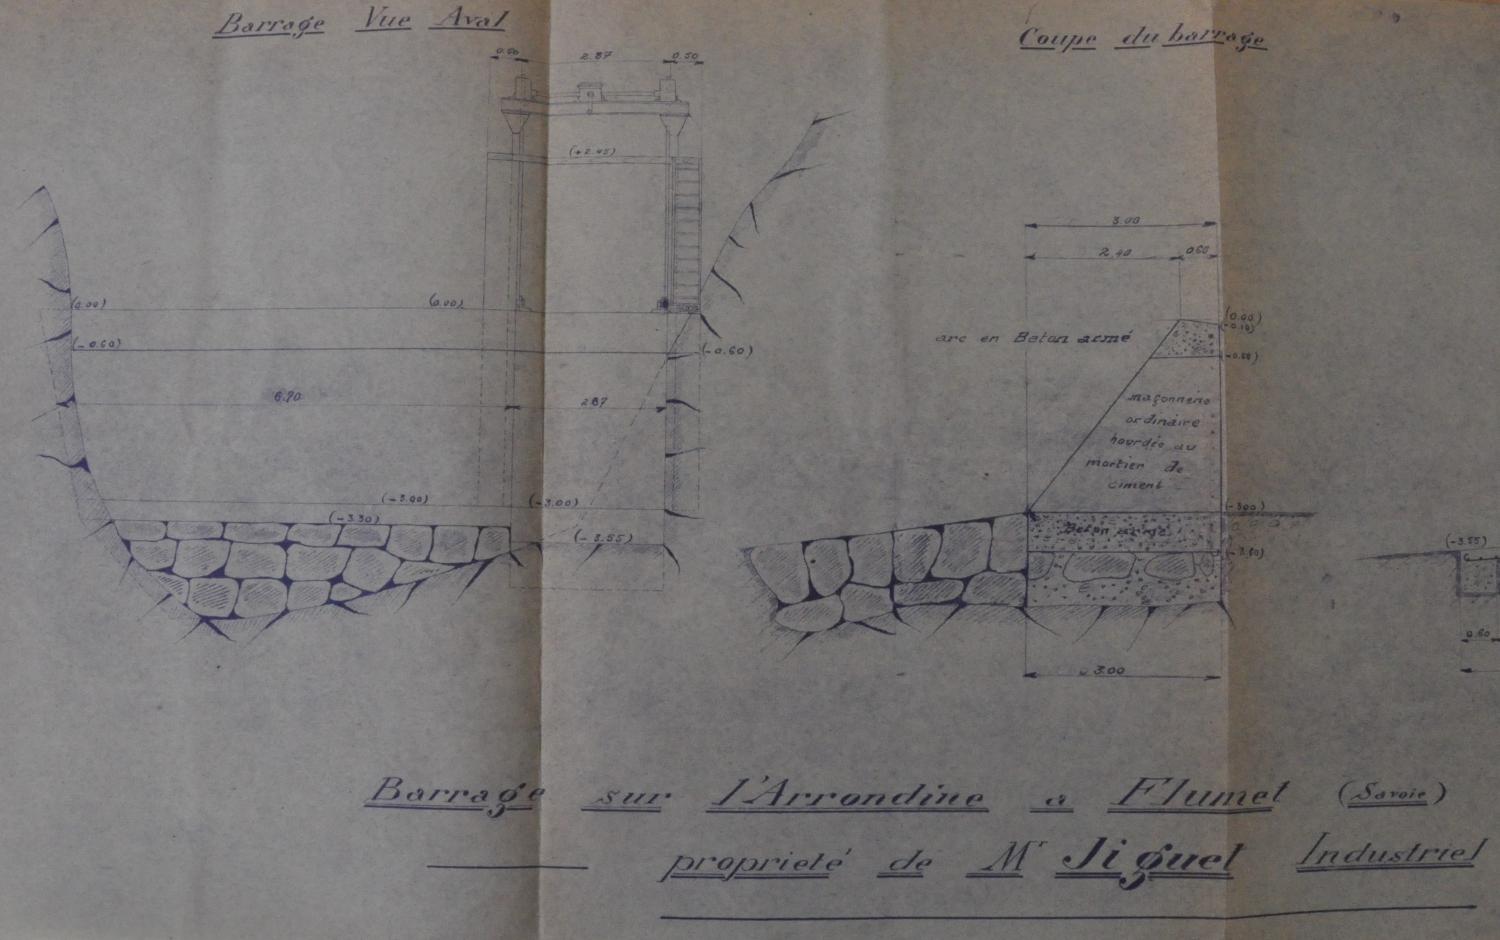 Barrage Vue Aval
Coupe du barrage
2.87
0.50
(+2.45)
3.00
2.40
0.60
(0.00)
(0.00)
(-0.60)
(-0.60)
(0.00)
(-0.10)
arc en Beton armé
maçonnerie
ordinaire
hourdée au
mortier de
ciment
6.70
2.87
(-3.00)
(-3.00)
(-3.30)
(-3.55)
(-3.00)
Beton armé
(-3.60)
(-3.55)
0.60
3.00
Barrage sur l'Arrondine a Flumet (Savoie)
proprieté de Mr Jiguet Industriel